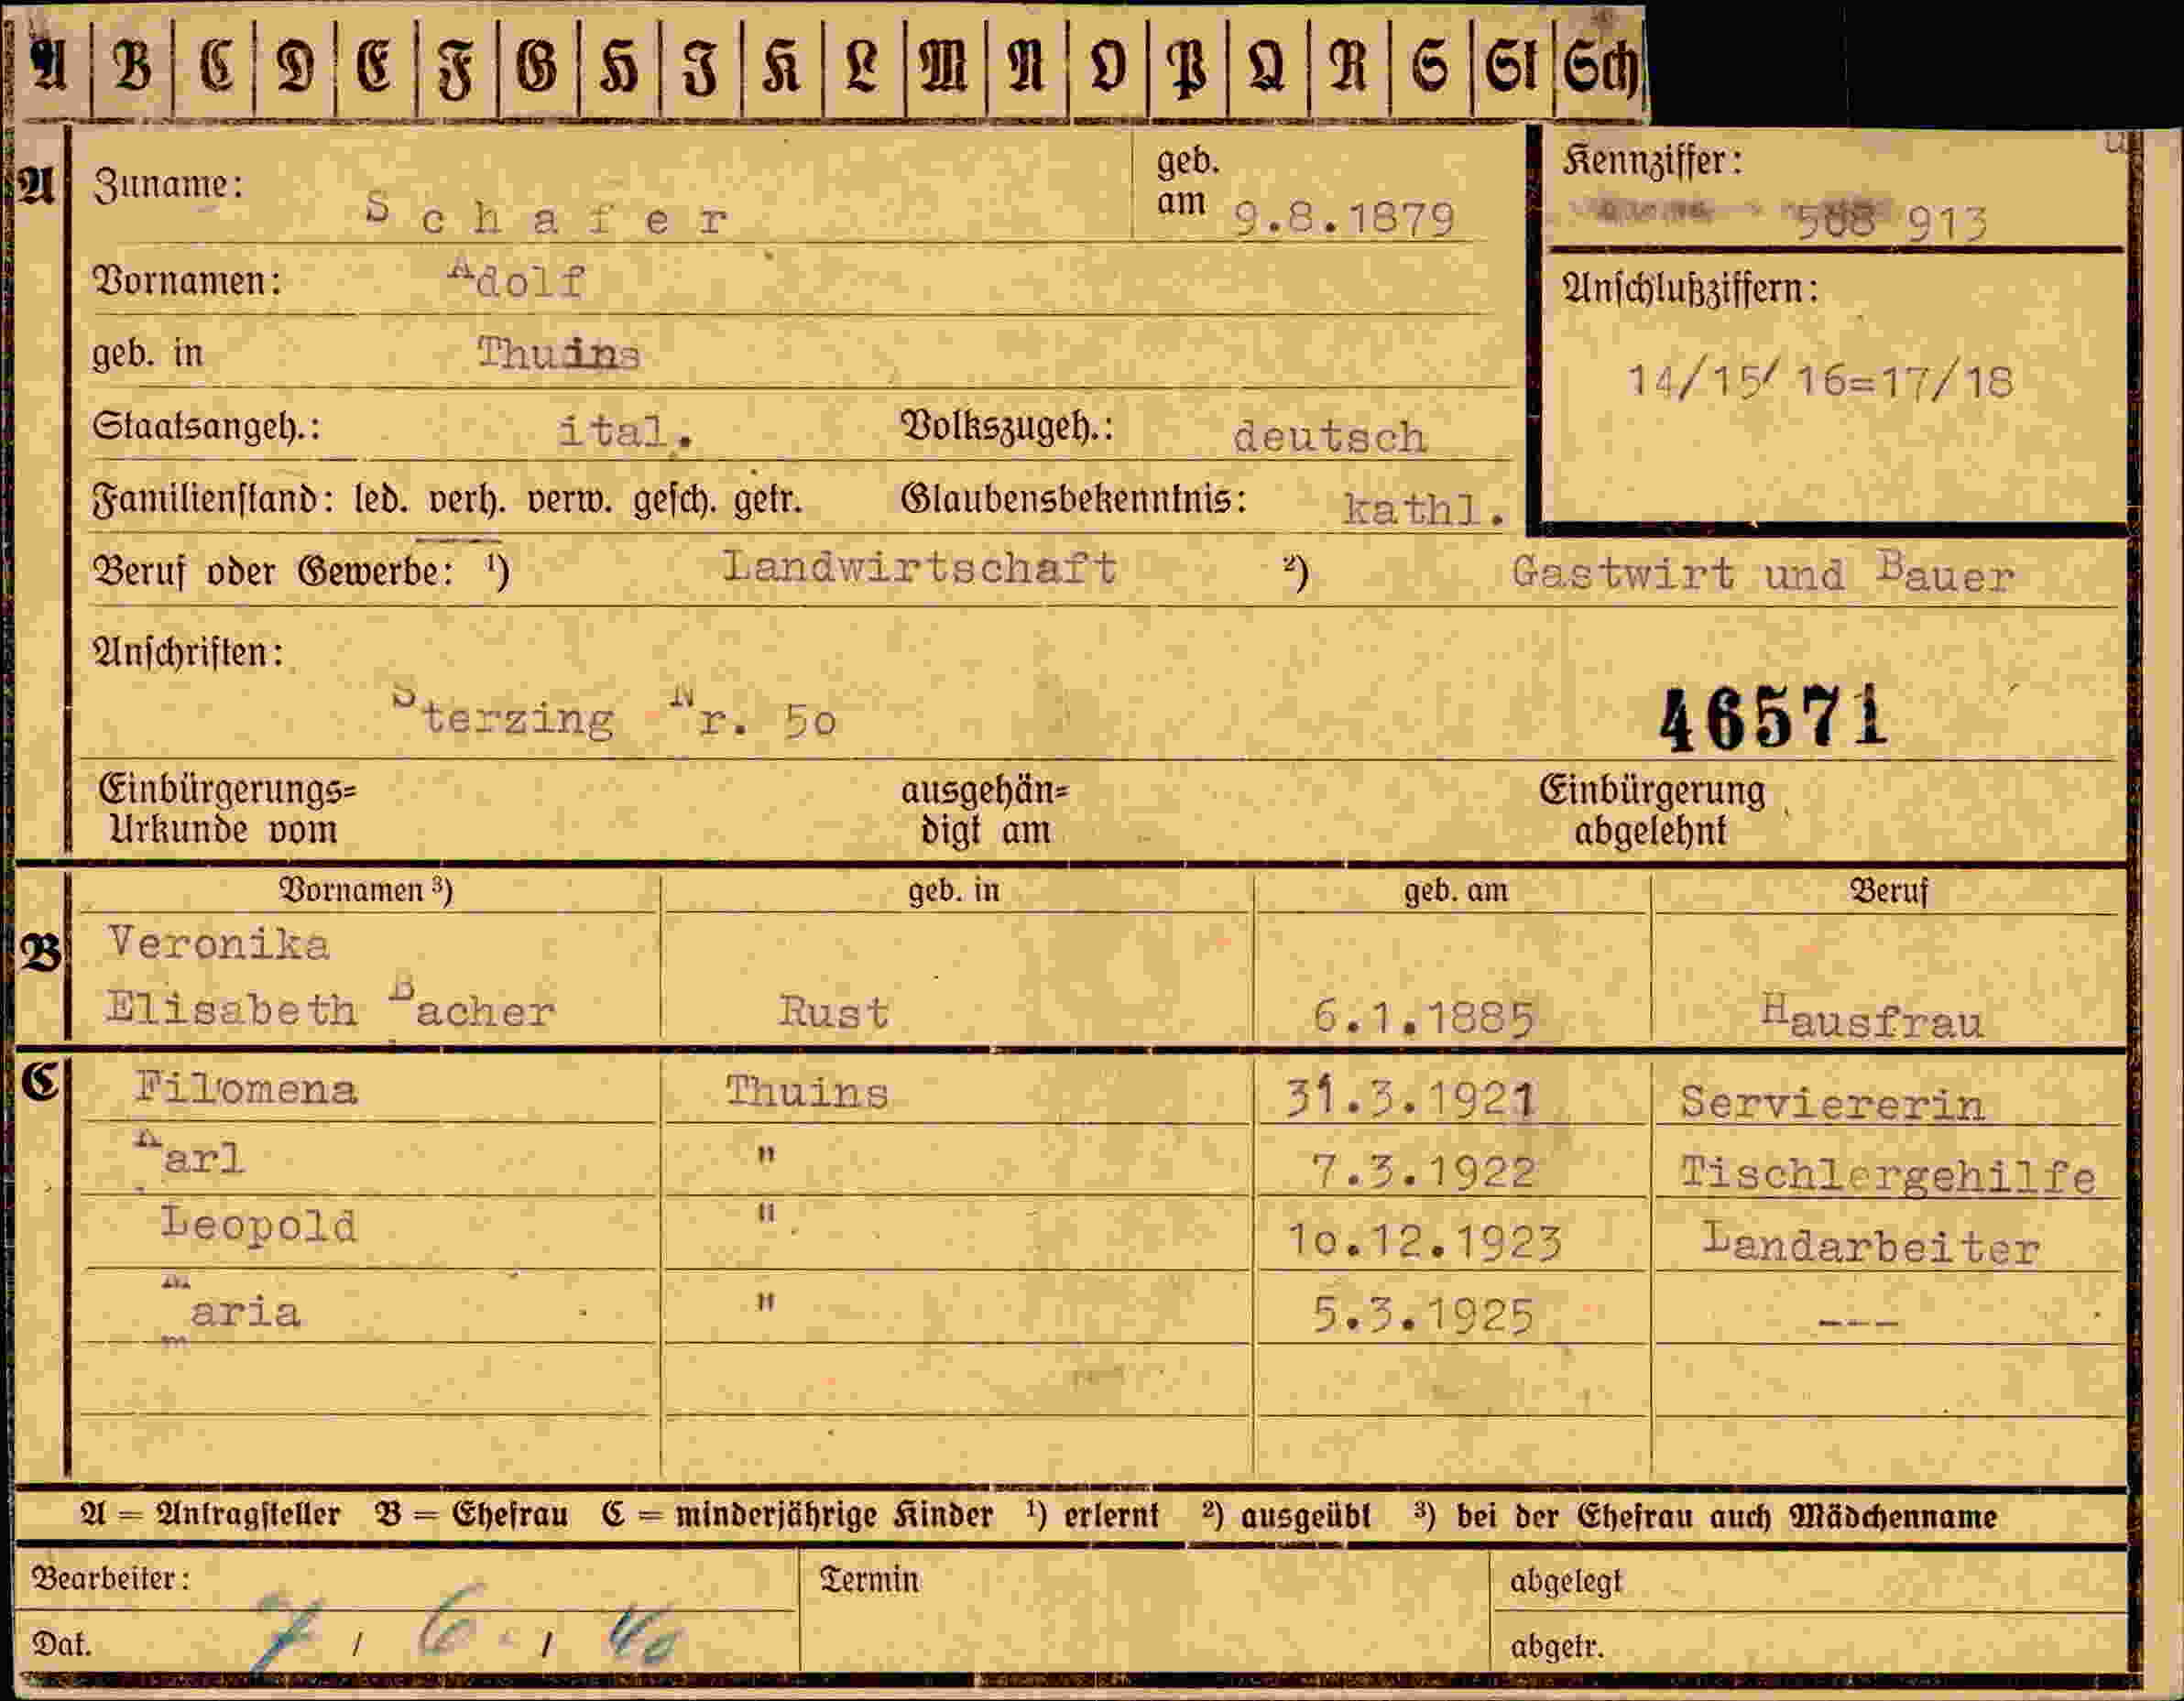 A B C D E F G H I K L M N O P Q R S St Sch
A Zuname: Schafer geb. am 9.8.1879 Kennziffer: 508 913
Vornamen: Adolf Anschlußziffern:
geb. in Thuins 14/15/ 16=17/18
Staatsangeh.: ital. Volkszugeh.: deutsch
Familienstand: led. verh. verw. gesch. getr. Glaubensbekenntnis: kathl.
Beruf oder Gewerbe: ¹) Landwirtschaft ²) Gastwirt und Bauer
Anschriften:
Sterzing Nr. 50 46571
Einbürgerungs= ausgehän= Einbürgerung
Urkunde vom digt am abgelehnt
Vornamen ³) geb. in geb. am Beruf
B Veronika
Elisabeth Bacher Rust 6.1.1885 Hausfrau
C Filomena Thuins 31.3.1921 Serviererin
Karl " 7.3.1922 Tischlergehilfe
Leopold " 10.12.1923 Landarbeiter
Maria " 5.3.1925 ---
A = Antragsteller B = Ehefrau C = minderjährige Kinder ¹) erlernt ²) ausgeübt ³) bei der Ehefrau auch Mädchenname
Bearbeiter: Termin abgelegt
Dat. 7 / 6 / 40 abgetr.